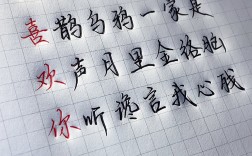 喜鹊乌鸦一家是
欢声月里金络脑
你听谗言我心残